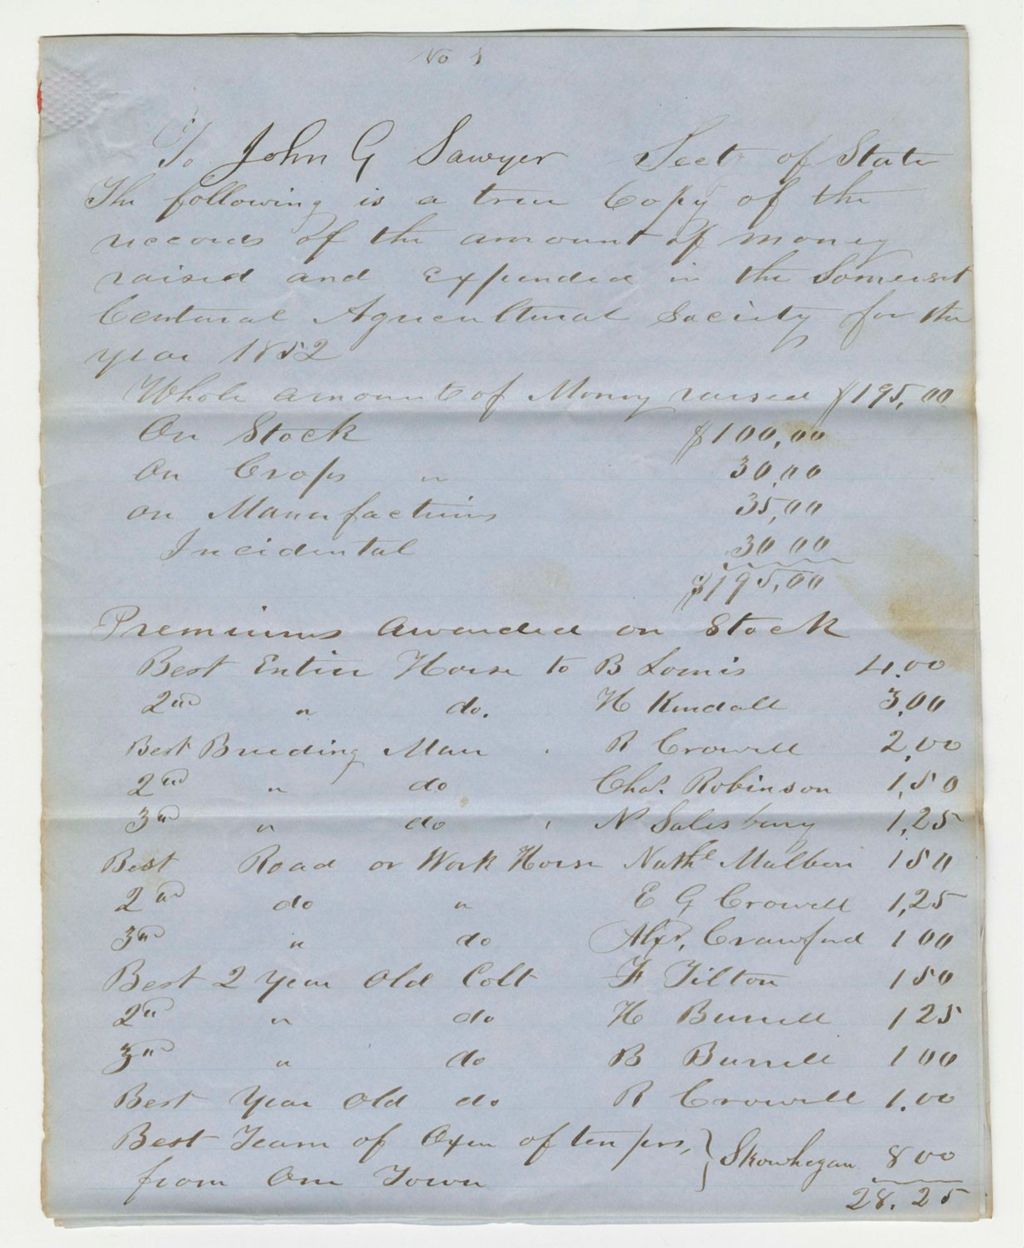 No 1
To John G Sawyer Sect of State
The following is a true Copy of the
records of the amount of money
raised and Expended in the Somerset
Centeral Agricultural Society for the
year 1852
Whole amount of Money raised $195,00
On Stock $100,00
On Crops " 30,00
on Manufactures 35,00
Incidental 30 00
$195,00
Premiums awarded on Stock
Best Entire Horse to B Lomis 4.00
2nd " do. H Kendall 3,00
Best Breeding Mare R Crowell 2,00
2nd " do Chas. Robinson 1,50
3rd " do N Salesbury 1,25
Best Road or Work Horse Nathl Malbon 150
2nd do " E G Crowell 1,25
3rd " do Alxr. Crawford 100
Best 2 Year Old Colt F Tilton 150
2nd " do H Burrell 125
3rd " do B Burrell 100
Best Year Old do R Crowell 1.00
Best Team of Oxen of ten prs,
from One Town } Skowhegan 800
28.25